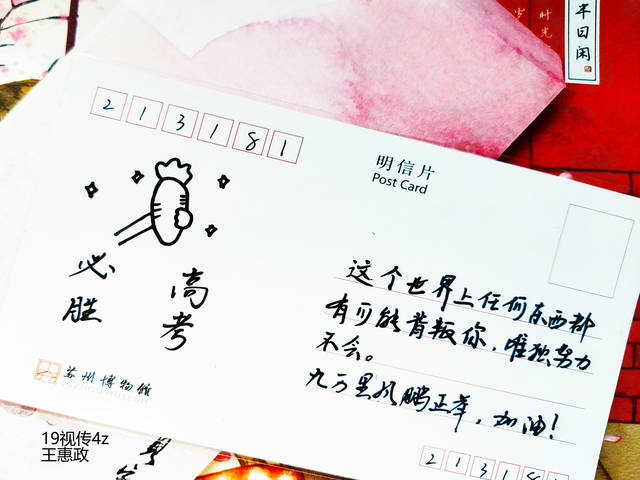 半日闲
时光
213181
明信片
Post Card
高考
必胜
这个世界上任何东西都
有可能背叛你，唯独努力
不会。
九万里风鹏正举，加油！
苏州博物馆
19视传4z
王惠政
213181